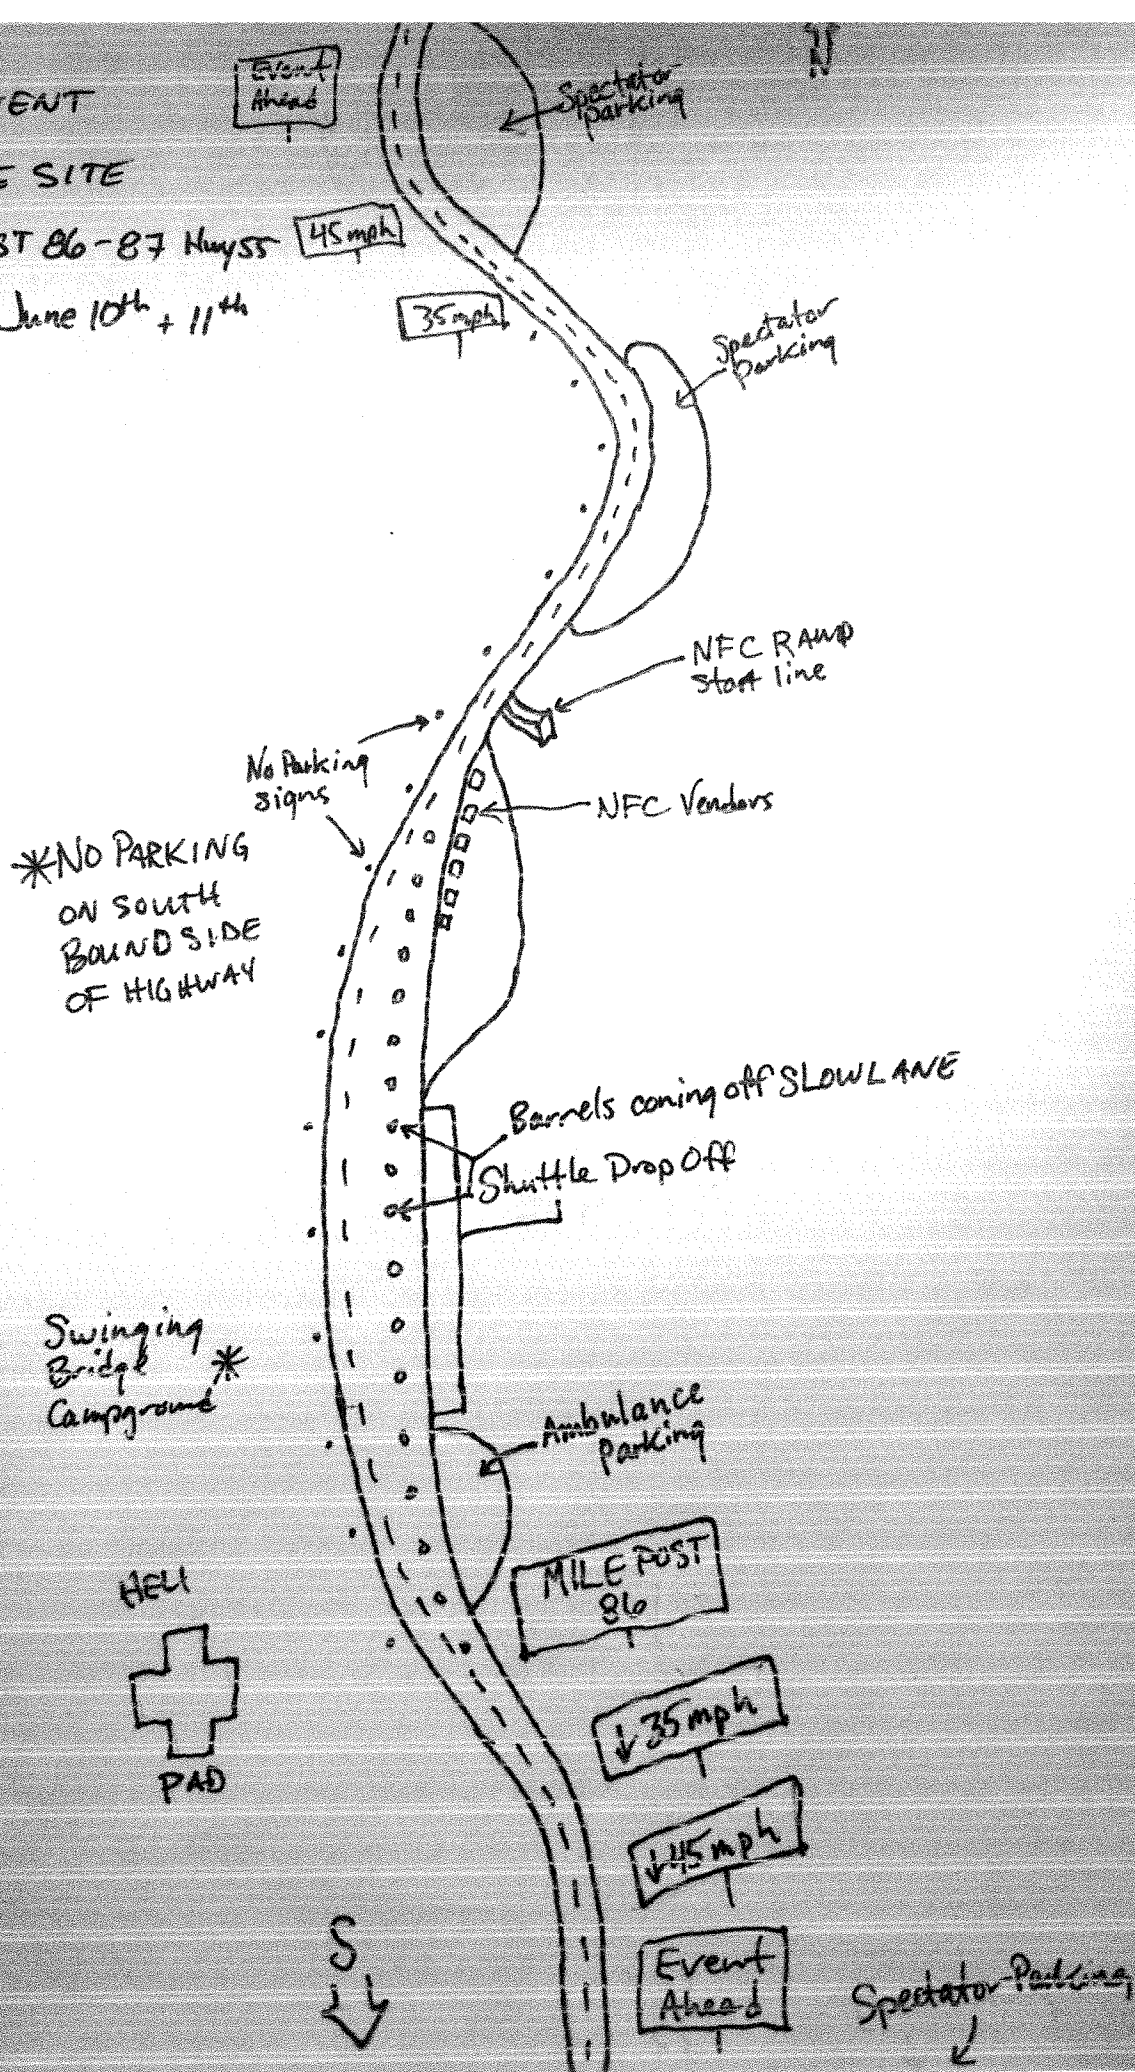 N
Event
Ahead
Spectator
parking
ENT
E SITE
ST 86-87 Hwy 55
June 10th + 11th
45 mph
35 mph
Spectator
Parking
NFC RAMP
Start line
No Parking
signs
NFC Vendors
*NO PARKING
ON SOUTH
BOUND SIDE
OF HIGHWAY
Barrels coming off SLOWLANE
Shuttle Drop Off
Swinging
Bridge
Campground
Ambulance
Parking
MILE POST
86
HELI
PAD
↓35 mph
↓45 mph
S
Event
Ahead
Spectator Parking